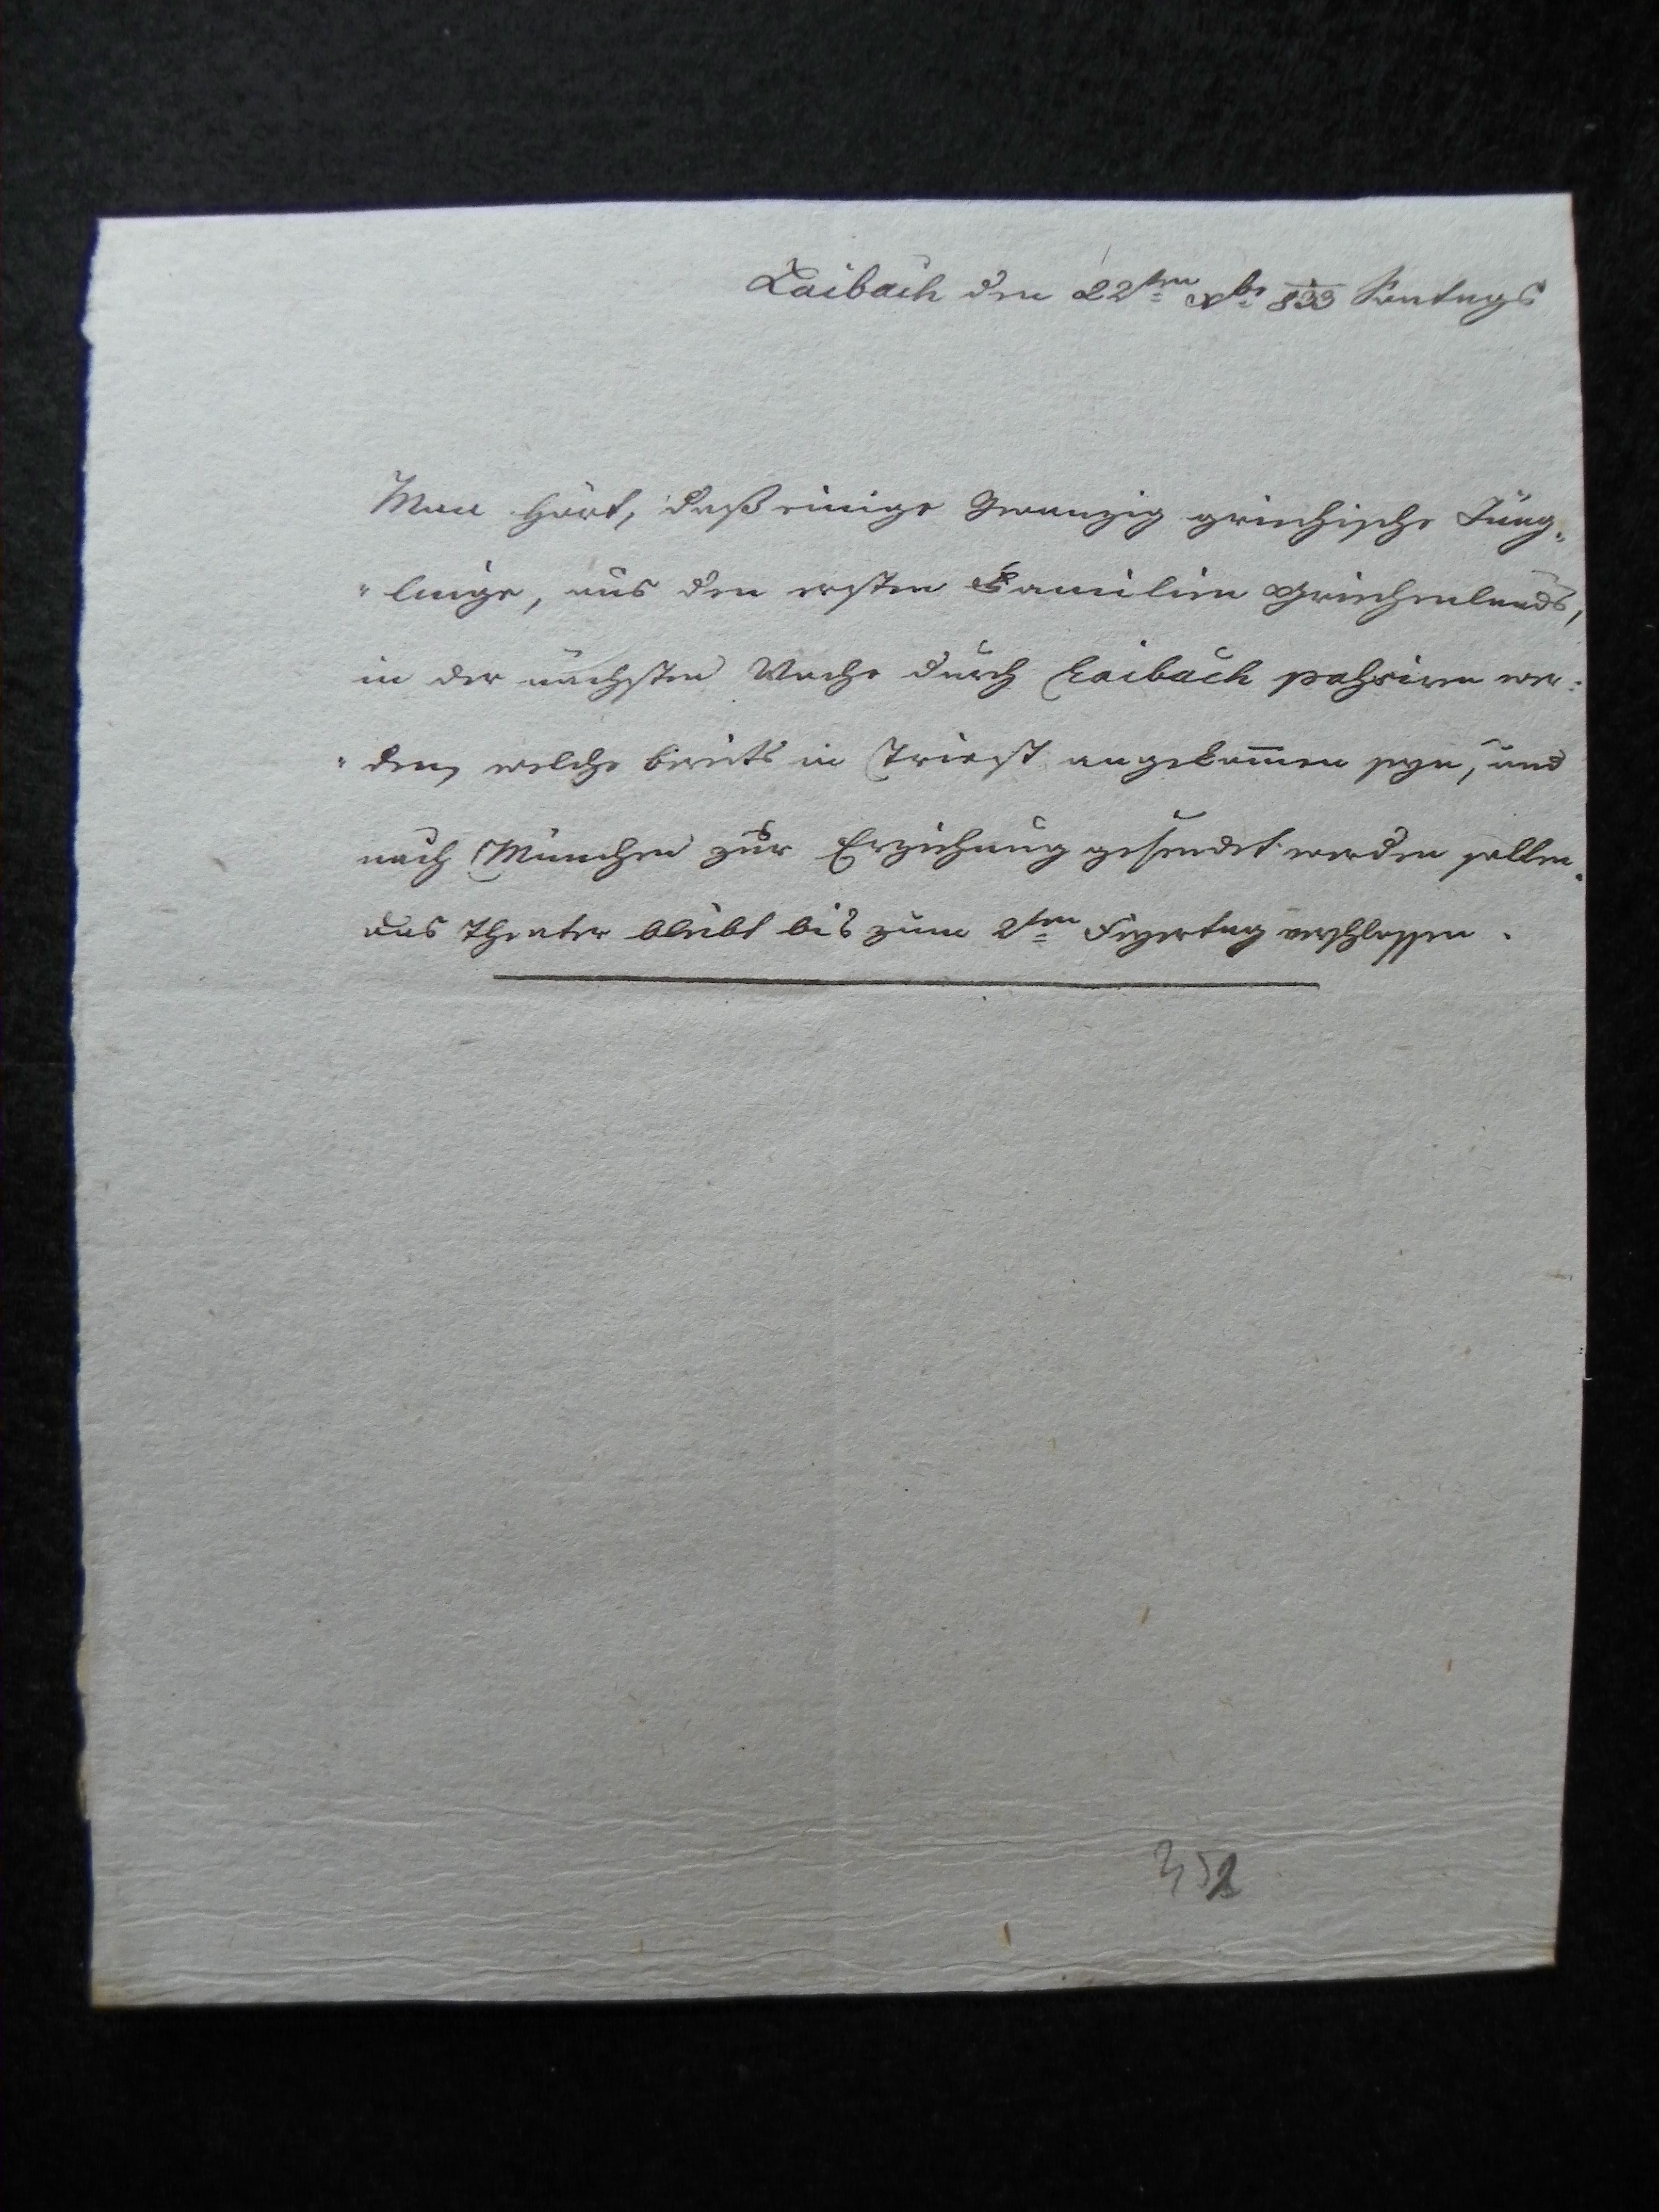 Laibach den 22ten Xbr 833 Sontags
Man hört, daß einige Zwanzig griechische Jüng„
„linge, aus den ersten Familien Griechenlands,
in der nächsten Woche durch Laibach paßiren wer:
„den, welche bereits in Triest angekom̅en seyn, und
nach München zur Erziehung gesendet werden sollen.
das Theater bleibt bis zum 2ten Feyertag verschlossen.